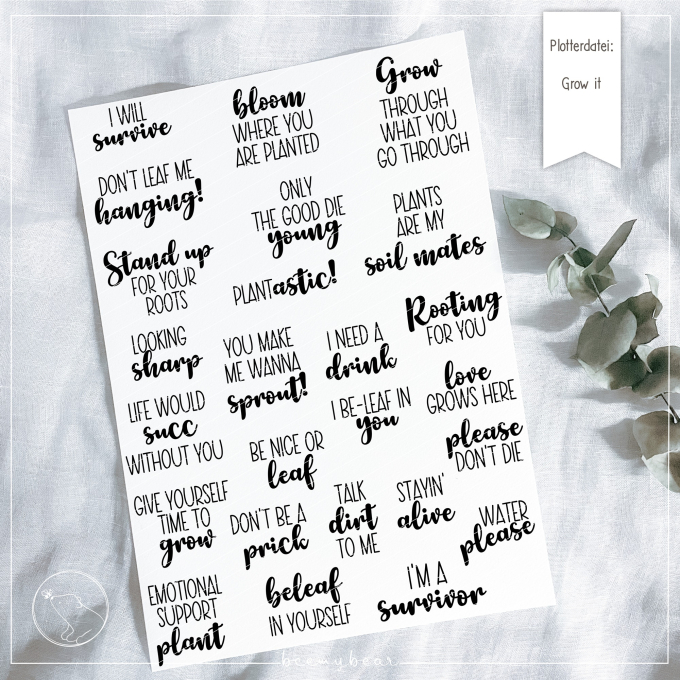 Plotterdatei:
Grow it
I WILL
survive
bloom
WHERE YOU
ARE PLANTED
Grow
THROUGH
WHAT YOU
GO THROUGH
DON'T LEAF ME
hanging!
ONLY
THE GOOD DIE
young
PLANTS
ARE MY
soil mates
Stand up
FOR YOUR
ROOTS
PLANTastic!
Rooting
FOR YOU
LOOKING
sharp
YOU MAKE
ME WANNA
sprout!
I NEED A
drink
love
GROWS HERE
LIFE WOULD
succ
WITHOUT YOU
I BE-LEAF IN
you
BE NICE OR
leaf
please
DON'T DIE
GIVE YOURSELF
TIME TO
grow
DON'T BE A
prick
TALK
dirt
TO ME
STAYIN'
alive
WATER
please
EMOTIONAL
SUPPORT
plant
beleaf
IN YOURSELF
I'M A
survivor
beemybear